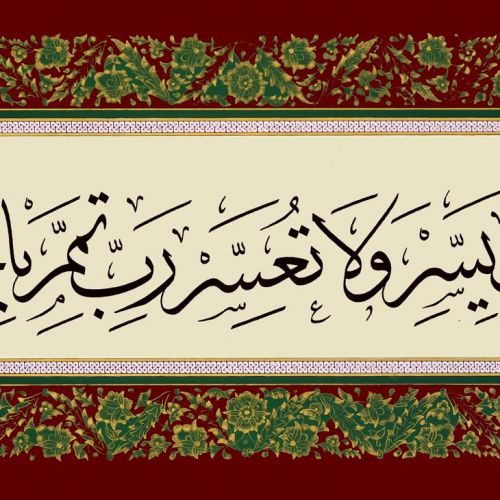 يسِّر وَلا تُعَسِّر رَبِّ تمِّم